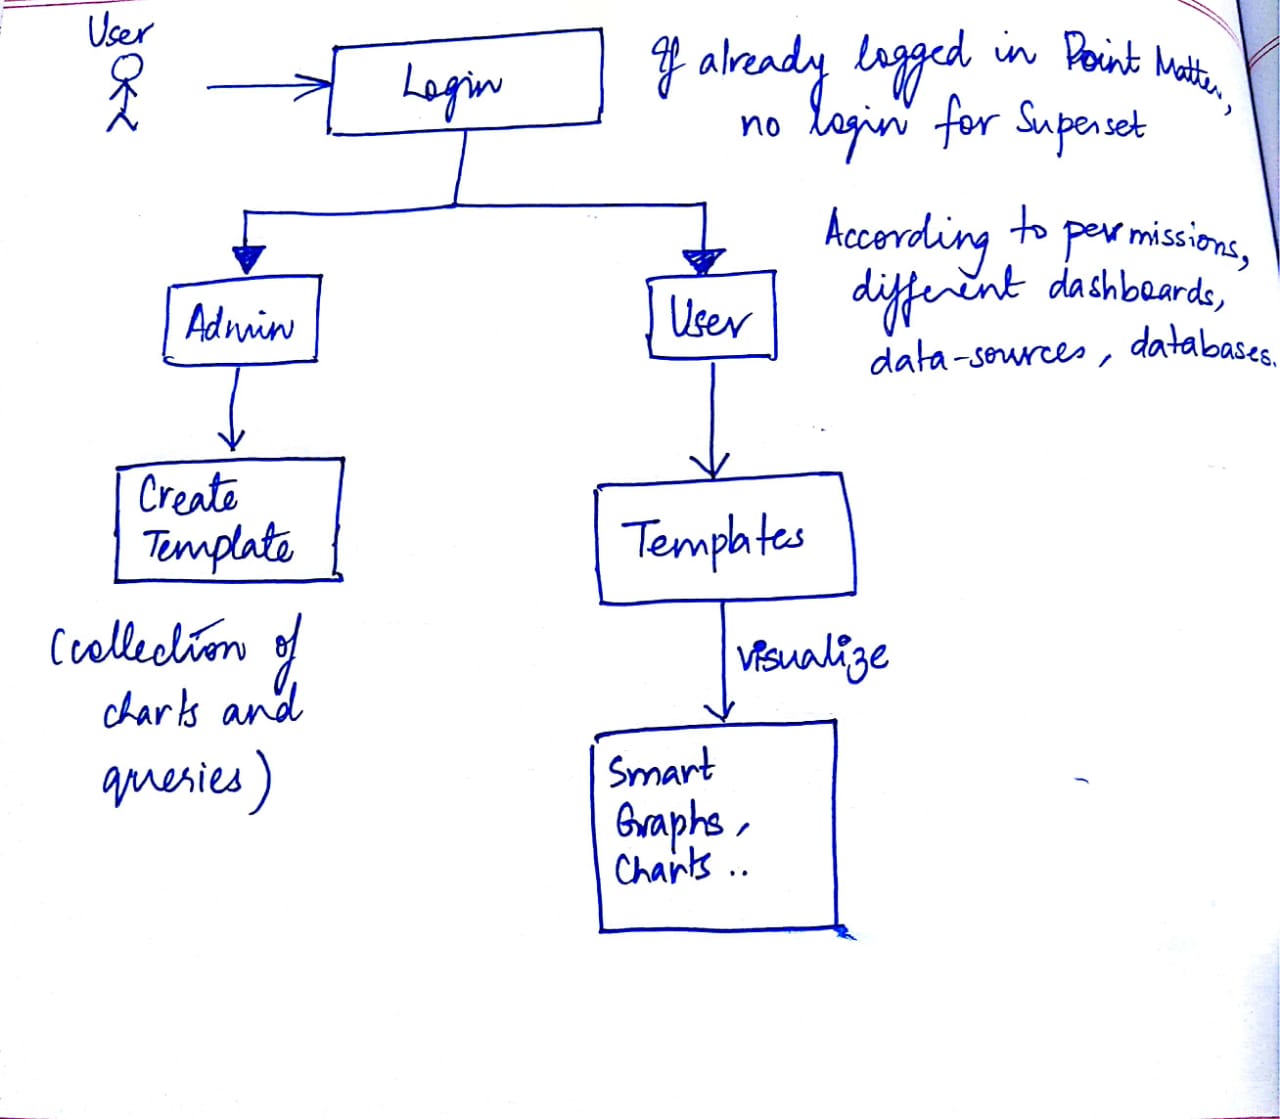 User
Login
If already logged in Point Matter,
no login for Superset
According to permissions,
different dashboards,
data-sources, databases.
Admin
User
Create
Template
(collection of
charts and
queries)
Templates
visualize
Smart
Graphs,
Charts ..